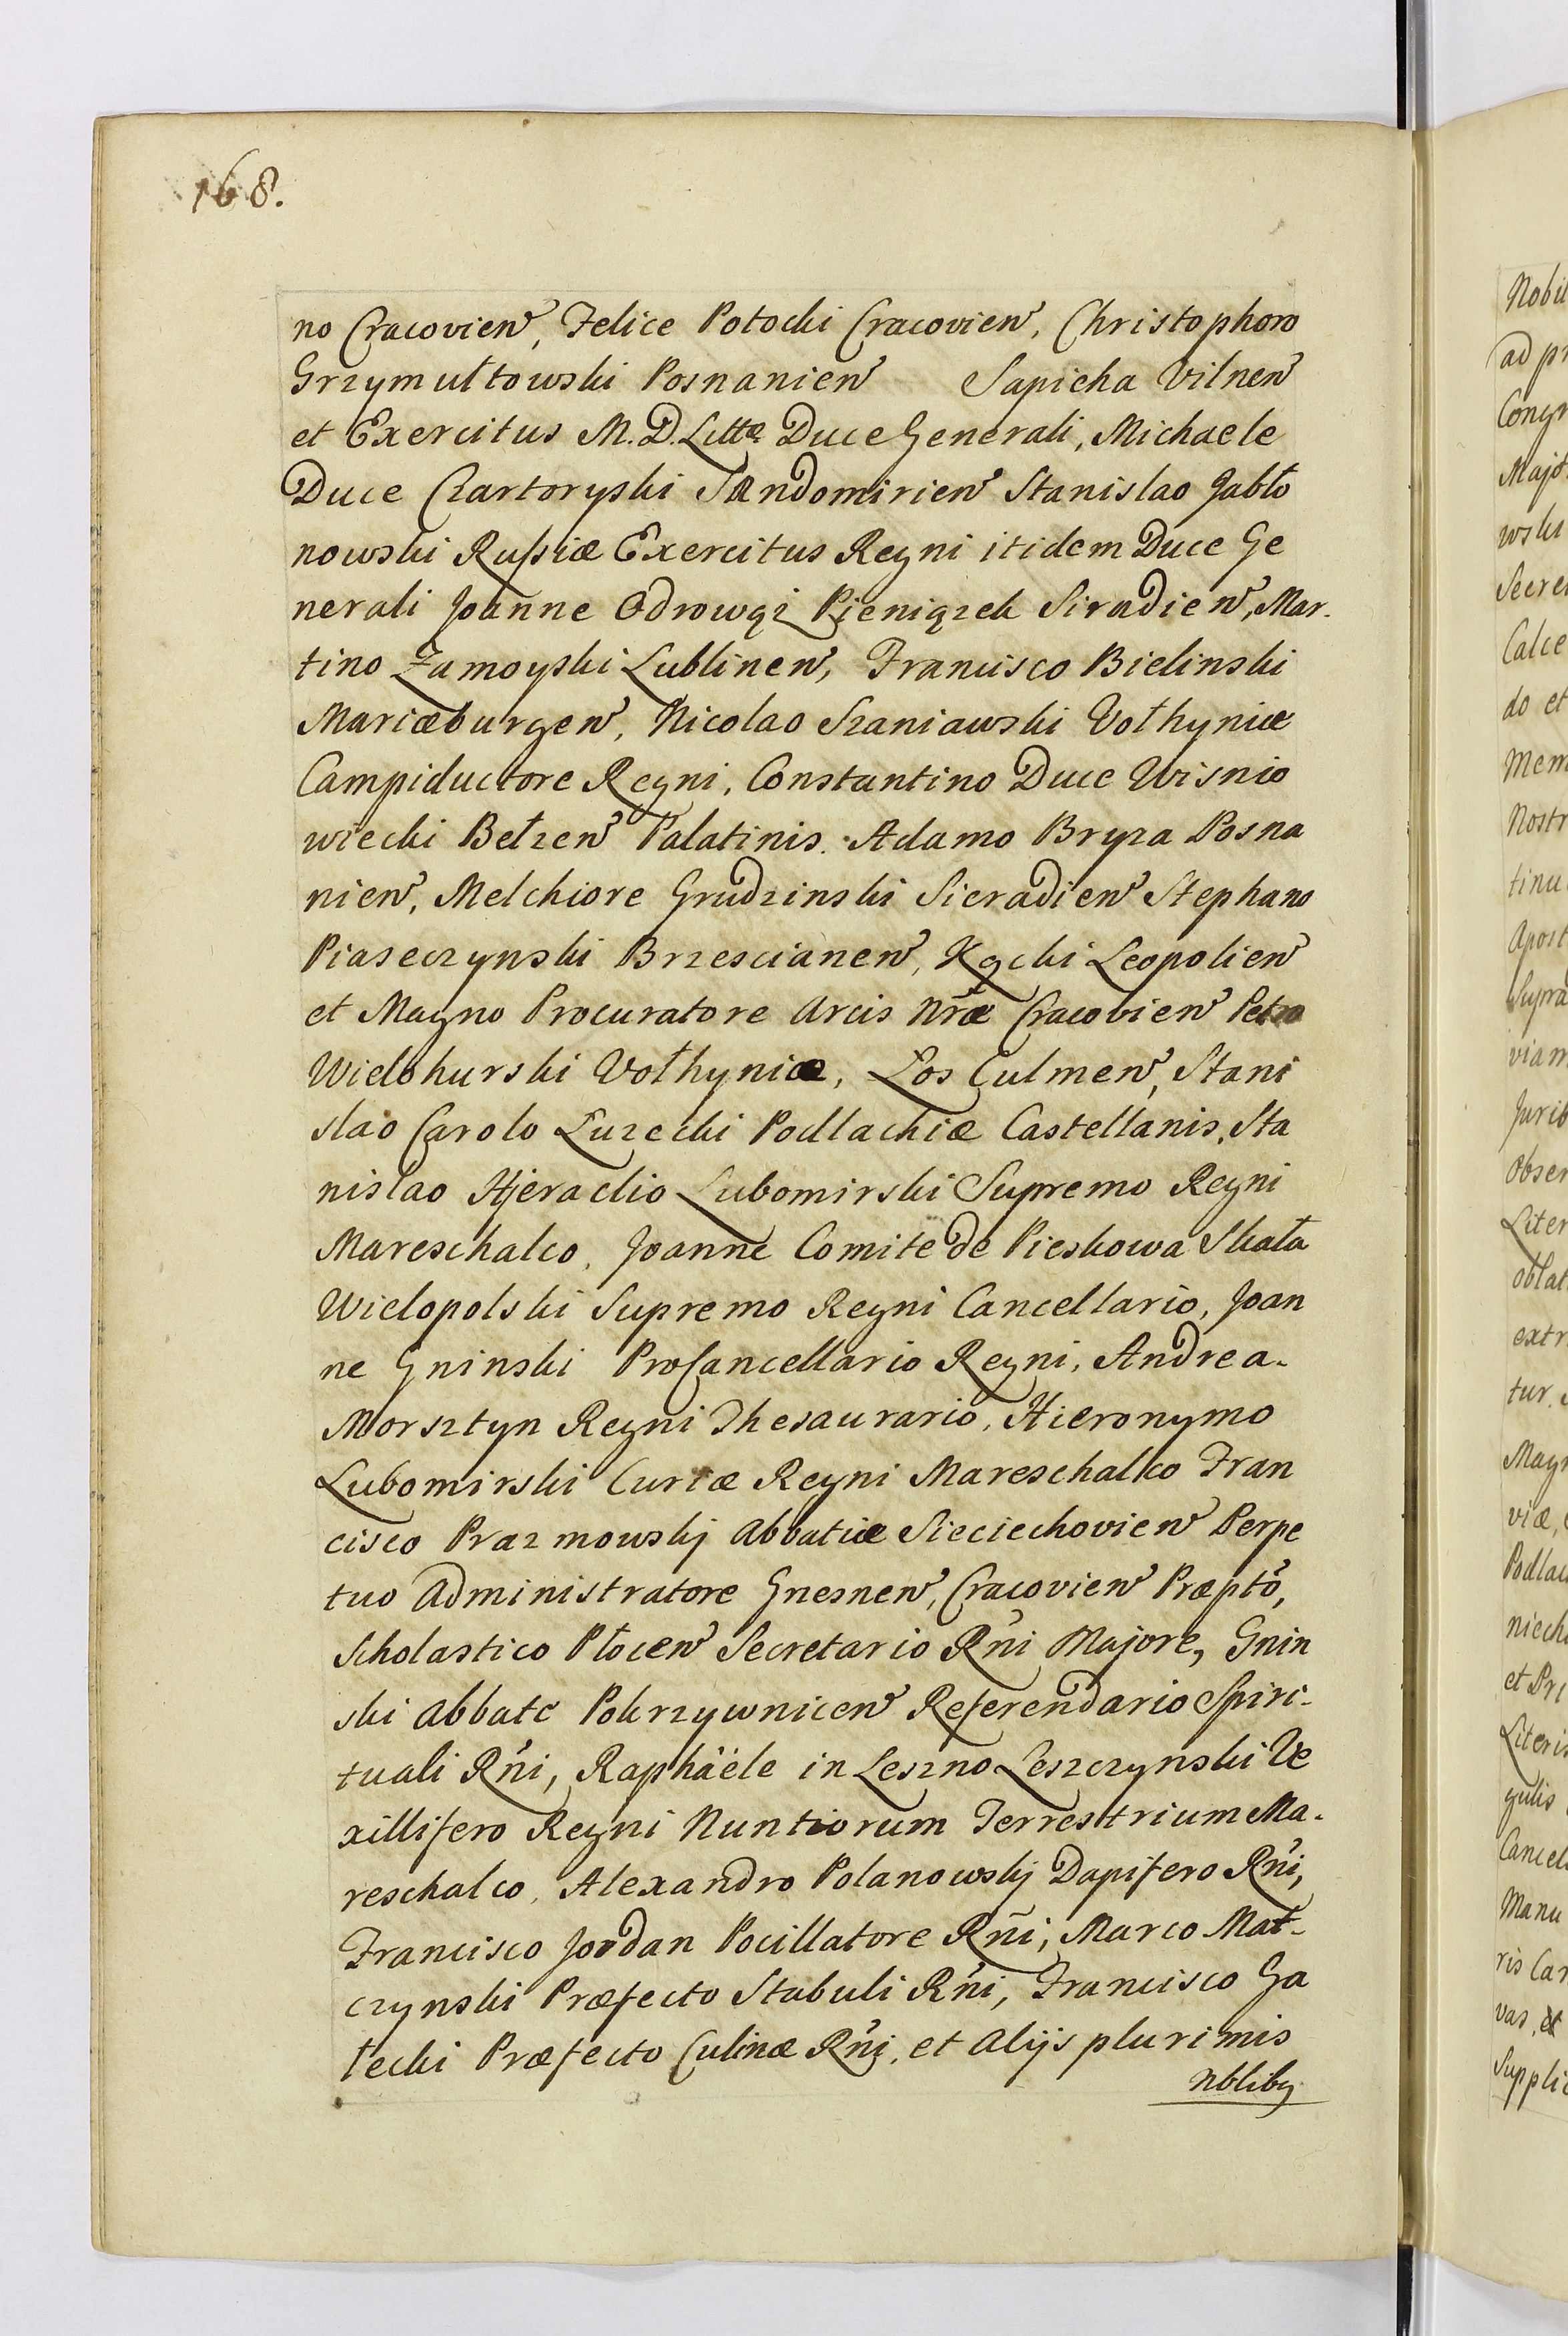 168.
no Cracovien, Felice Potocki Cracovien, Christophoro
Grzymułtowski Posnanien Sapieha Vilnen
et Exercitus M. D. Littæ Duce Generali, Michaele
Duce Czartoryski SAndomirien Stanislao Jabło
nowski Rußiæ Exercitus Regni itidem Duce Ge
nerali Joanne Odrowąż Pieniążek Siradien, Mar-
tino Zamoyski Lublinen, Francisco Bielinski
Mariæburgen, Nicolao Szaniawski Vołhyniæ
Campiductore Regni, Constantino Duce Wisnio
wiecki Bełzen Palatinis. Adamo Bryza Posna
nien, Melchiore Grudzinski Sieradien Stephano
Piaseczynski Brzescianen, Kącki Leopolien
et Magno Procuratore Arcis Nr̃æ Cracovien Petro
Wielohurski Vołhyniæ, Los Culmen, Stani
slao Carolo Luzecki Podlachiæ Castellanis, Sta
nislao Hjeraclio Lubomirski Supremo Regni
Mareschalco, Joanne Comite de Pieskowa Skała
Wielopolski Supremo Regni Cancellario, Joan
ne Gninski ProCancellario Regni, Andrea-
Morsztyn Regni Thesaurario, Hieronymo
Lubomirski Curiæ Regni Mareschalco Fran
cisco Prazmowskj Abbatiæ Sieciechovien Perpe
tuo Administratore Gnesnen, Cracovien Præpto,
Scholastico Płocen Secretario Rñi Majore, Gnin
ski Abbate Pokrzywnicen Referendario Spiri-
tuali Rñi, Raphäele in Leszno Leszczynski Ve
xillifero Regni Nuntiorum Terrestrium Ma-
reschalco, Alexandro Polanowskj Dapifero Rñi,
Francisco Jordan Pocillatore Rñi, Marco Mat-
czynski Præfecto Stabuli Rñi, Francisco Ga
łecki Præfecto Culinæ Rñi, et Alijs plurimis
Nbliby
Nobil
ad pr
Congr
Majo
wski
Secre
Calce
do et
Mem
Nostr
tinu
Apost
Supra
viam
Jurib
Obser
Liter
oblat
extr
tur.
Magn
viæ,
Podlac
niech
et Pri
Literis
gulis
Cancel
Manu
ris Car
vas, et
Supplic